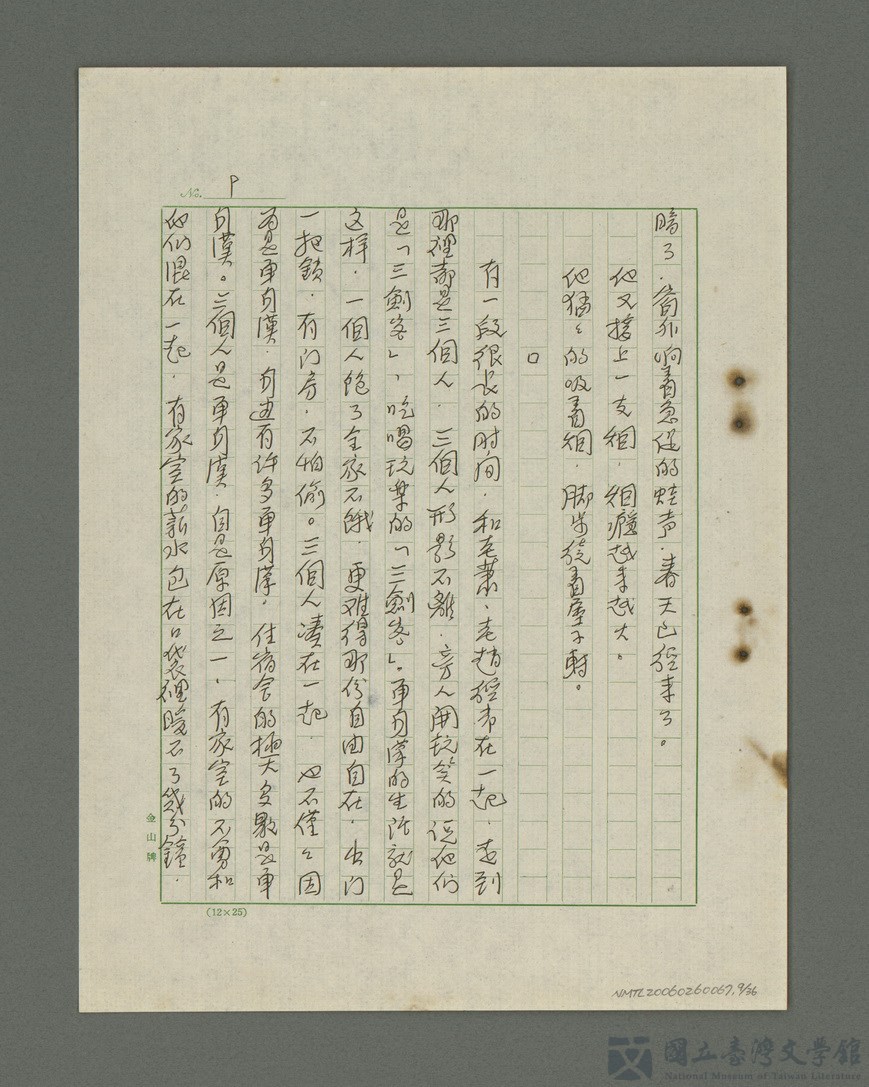 No. 9
暗了．窗外响着急促的蛙声．春天已经来了。
他又接上一支烟．烟瘾越来越大。
他猛々的吸着烟．脚步绕着屋子转。
○
有一段很长的时间．和老萧、老趙经常在一起．走到
那裡都是三個人．三個人形影不離．旁人開玩笑的说他们
是「三劍客」，吃喝玩樂的「三劍客」。单身漢的生活就是
这样．一個人飽了全家不餓．更难得那份自由自在．出门
一把鎖．有门房．不怕偷。三個人凑在一起．也不僅々因
為是单身漢．身边有许多单身漢．住宿舍的極大多數是单
身漢。三個人是单身漢．自是原因之一．有家室的不勇和
他们混在一起．有家室的薪水包在口袋裡暖不了幾分鐘．
金山牌
(12×25)
NMTL20060260067,9/36
國立臺灣文學館
National Museum of Taiwan Literature